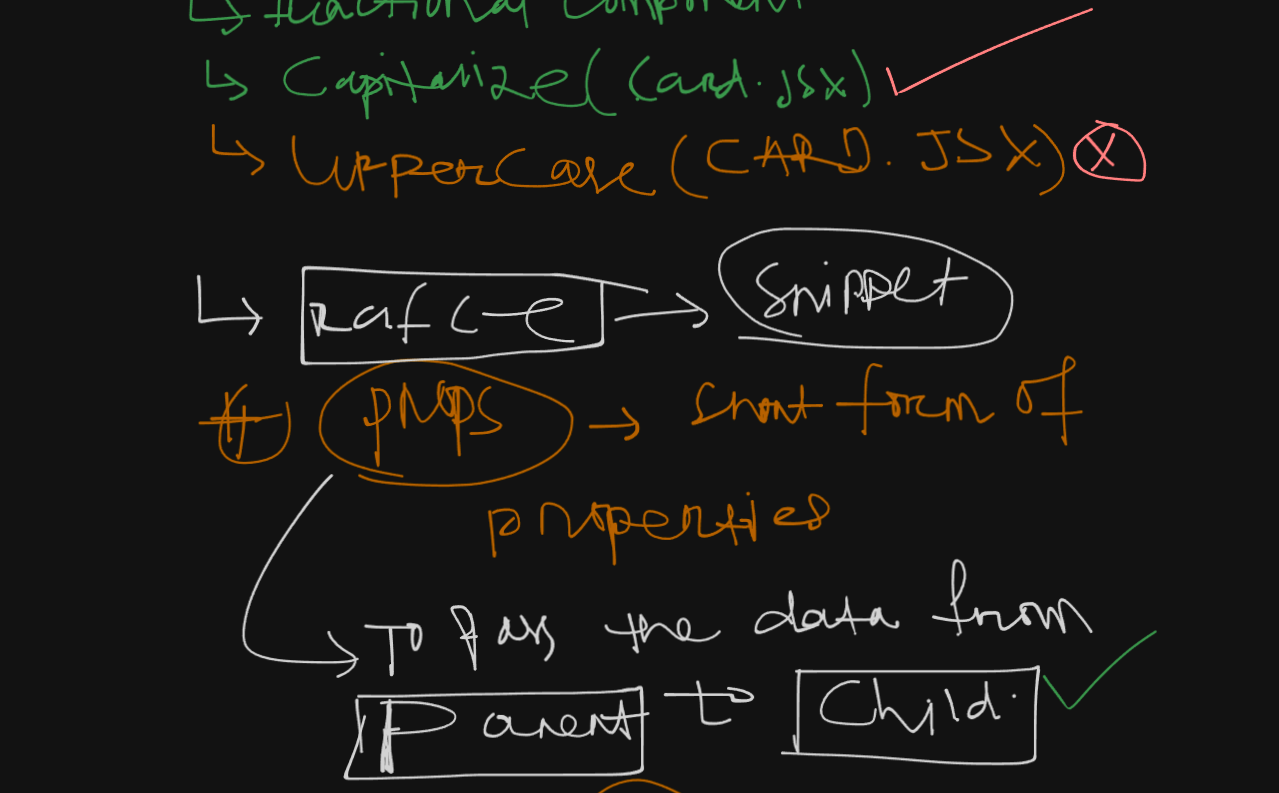 ↳ Functional Component
↳ Capitalize (Card.jsx) ✓
↳ UpperCase (CARD.JSX) ⓧ
↳ rafce → Snippet
# props → Short form of
properties
→ To Pass the data from
Parent to Child. ✓